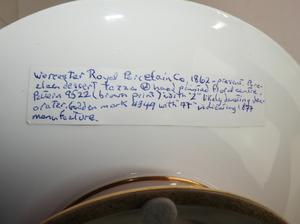 Worcester Royal Porcelain Co, 1862-present. Porce-
lain dessert tazza hand painted floral centre.
Pattern 9522 (brown print) with "2" likely denoting dec-
orator. Golden mark 4349 with "77" indicating 1877
manufacture.